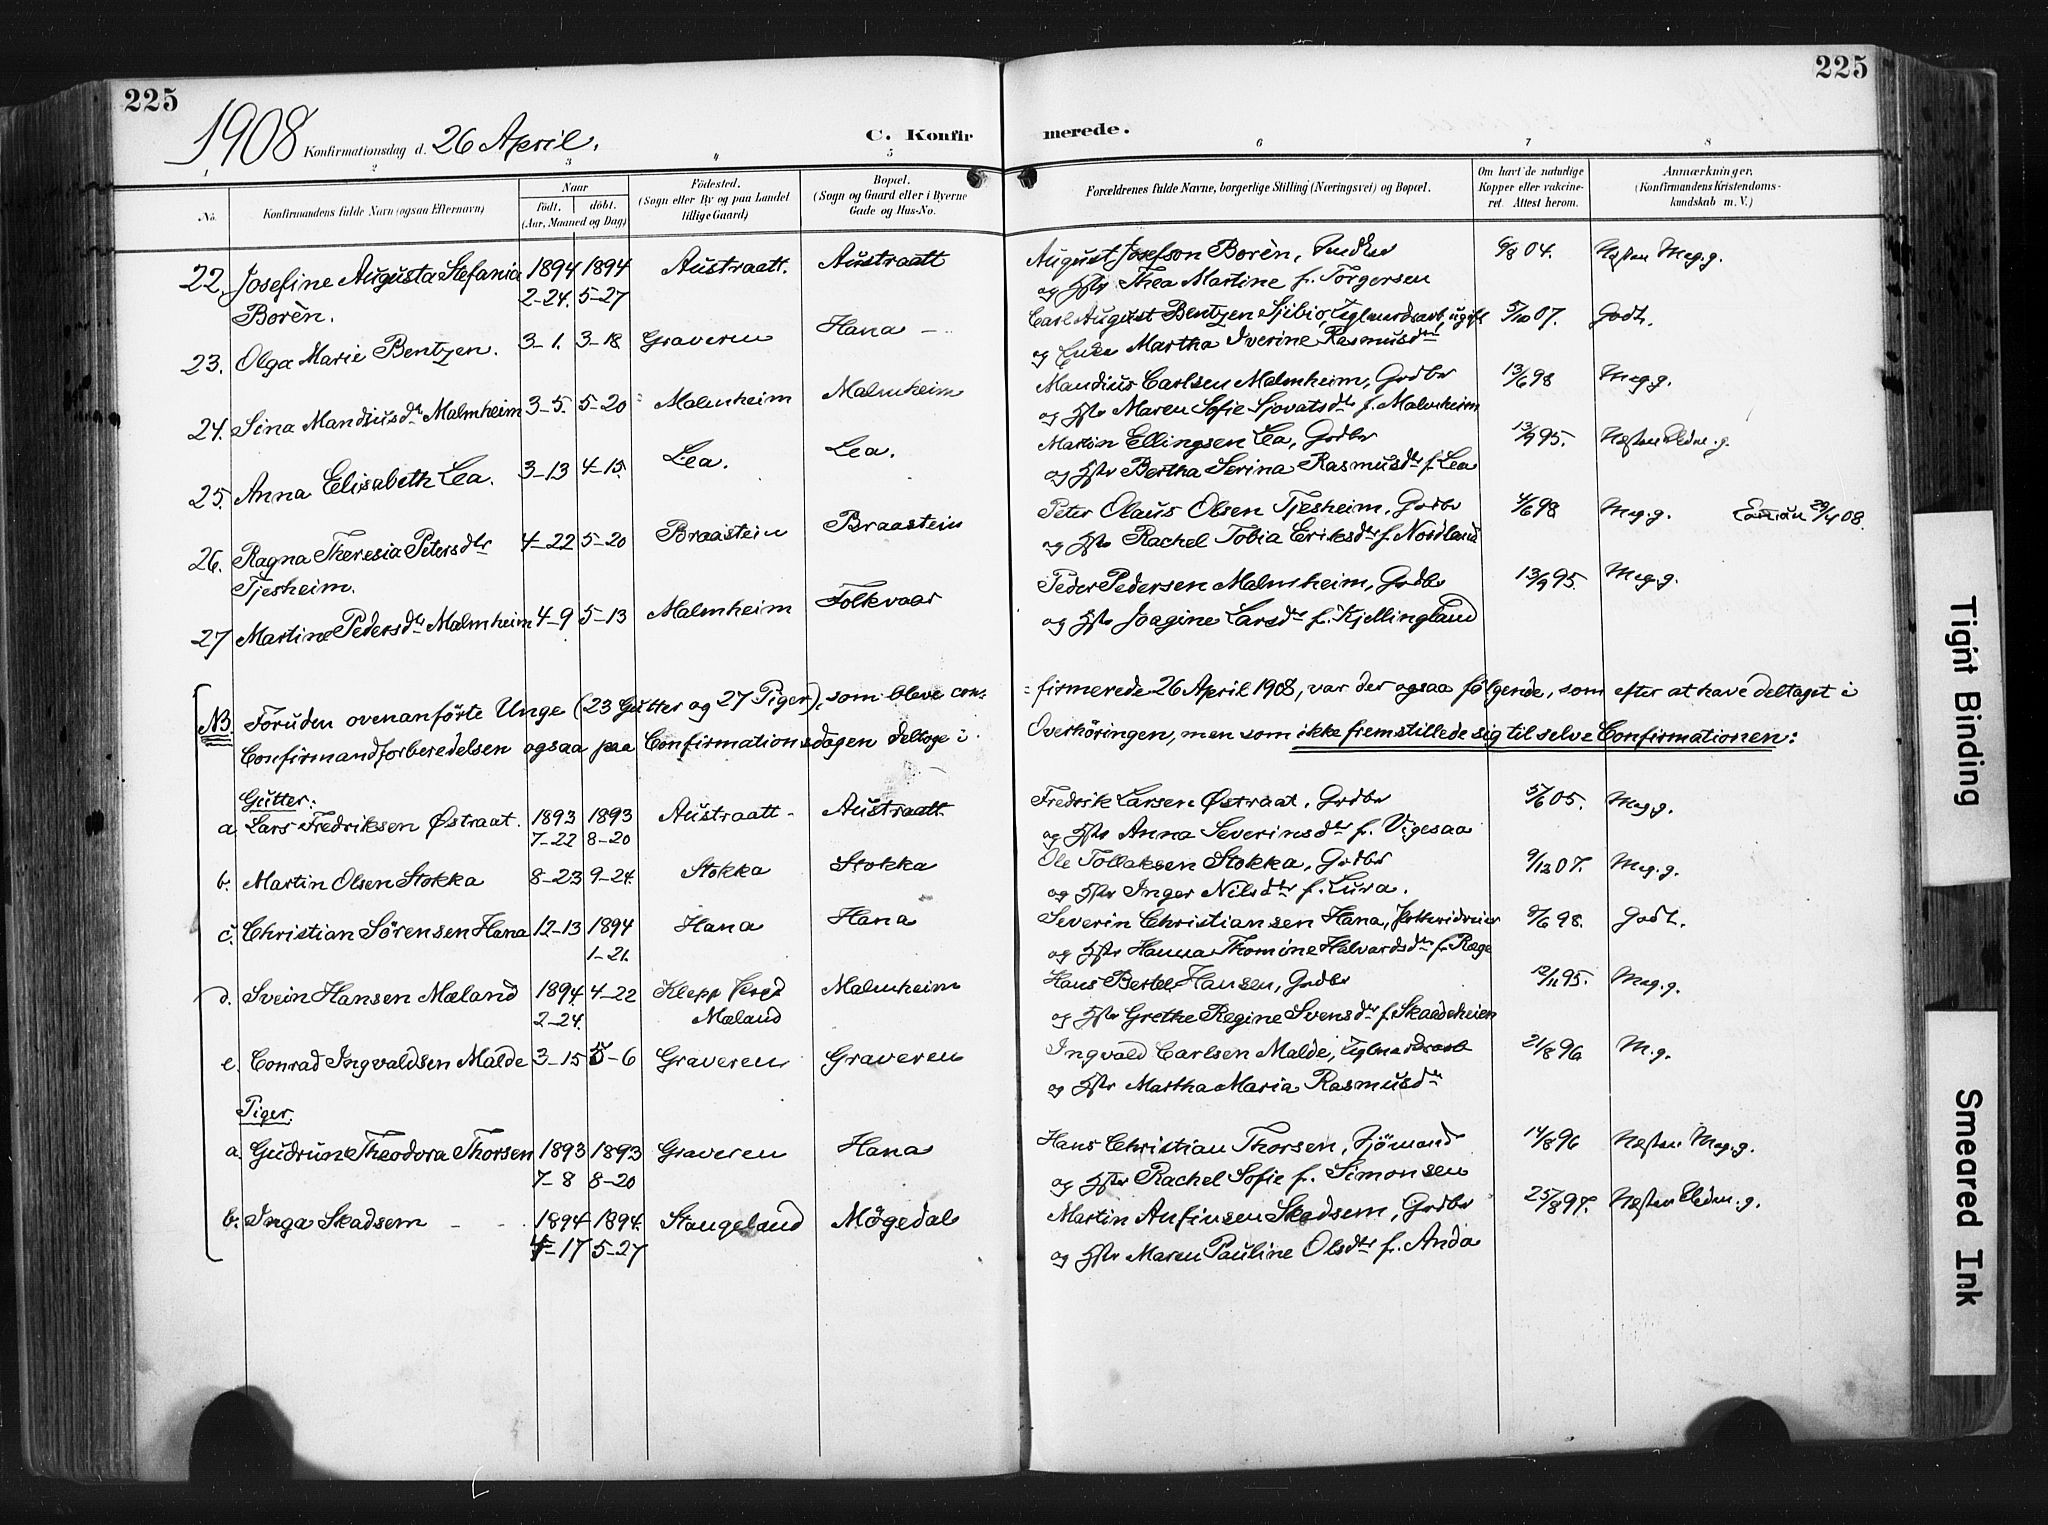 225
225
1908 Konfirmationsdag d. 26 April.
C. Konfirmerede.
1 2 3 4 5 6 7 8
No. Konfirmandens fulde Navn (ogsaa Efternavn) Naar födt. döbt. (Aar, Maaned og Dag) Födested. (Sogn eller By og paa Landet tillige Gaard) Bopæl. (Sogn og Gaard eller i Byerne Gade og Hus-No. Forældrenes fulde Navne, borgerlige Stilling (Næringsvei) og Bopæl. Om havt de naturlige Kopper eller vakcineret. Attest herom. Anmærkninger. (Konfirmandens Kristendomskundskab m. V.)
22. Josefine Augusta Stefania 1894 1894 Austraatt. Austraatt August Josefson Borèn, 6/8 04. Næsten Meg. g.
Borèn. 2-24. 5-27 og Hstr Thea Martine f. Torgersen
23. Olga Marie Bentzen. 3-1. 3-18 Graveren Hana - Carl August Bentzen ugift 5/10 07. Godt.
og Martha Iverine Rasmusdtr
24. Sina Mandiusdtr Malmheim 3-5. 5-20 Malmheim Malmheim Mandius Carlsen Malmheim, Grdbr 13/6 98 Meg. g.
og Hstr Maren Sofie Sjovatsdtr f. Malmheim
25. Anna Elisabeth Lea. 3-13 4-15. Lea. Lea. Martin Ellingsen Lea, Grdbr 13/9 95. Næsten g.
og Hstr Bertha Serina Rasmusdtr f. Lea
26. Ragna Theresia Petersdtr 4-22 5-20 Braastein Braastein Peter Olaus Olsen Tjesheim, Grdbr 4/6 98 Meg. g. 29/4 08.
Tjesheim. og Hstr Rachel Tobia Eriksdtr f. Nordland
27 Martine Pedersdtr Malmheim 4-9 5-13 Malmheim Folkvoar Peder Pedersen Malmheim, Grdbr 13/9 95. Meg. g.
og Hstr Joagine Larsdtr f. Kjellingland
NB. Foruden ovenanførte Unge (23 Gutter og 27 Piger), som bleve con-
=firmerede 26 April 1908, var der ogsaa følgende, som efter at have deltaget i
Confirmandforberedelsen ogsaa paa Confirmationsdagen deltoge i
Overhöringen, men som ikke fremstillede sig til selve Confirmationen:
Gutter:
a. Lars Fredriksen Østraat. 1893 1893 Austraatt - Austraatt. Fredrik Larsen Østraat, Grdbr 5/6 05. Meg. g.
7-22 8-20 og Hstr Anna Severinsdtr f. Vigesaa
b. Martin Olsen Stokka 8-23 9-24. Stokka Stokka Ole Tollaksen Stokka, Grdbr 9/12 07. Meg. g.
og Hstr Inger Nilsdtr f. Lura.
c. Christian Sörensen Hana 12-13 1894 Hana Hana Severin Christiansen Hana, 9/6 98. Godt.
1-21. og Hstr Hanna Thomine Halvardsdtr f. Rege
d. Svein Hansen Mæland 1894. 4-22 Klepp Malmheim Hans Bertel Hansen, Grdbr 12/11 95. Meg. g.
2-24. Mæland og Hstr Grethe Regine Svensdtr f. Skaadeheien
e. Conrad Ingvaldsen Malde 3-15 5-6 Graveren Graveren Ingvald Carlsen Malde, 21/8 96 M. g.
og Hstr Martha Maria Rasmusdtr
Piger.
a. Gudrun Theodora Thorsen 1893 1893 Graveren Hana Hans Christian Thorsen, Sjömand 14/8 96 Næsten Meg. g.
7-8 8-20 og Hstr Rachel Sofie f. Simonsen
b. Inga Skadsem - - 1894 1894. Stangeland Møgedal Martin Anfinsen Skadsem, Grdbr 25/8 97. Næsten g.
4-17 5-27 og Hstr Maren Pauline Olsdtr f. Anda
Tight Binding
Smeared Ink